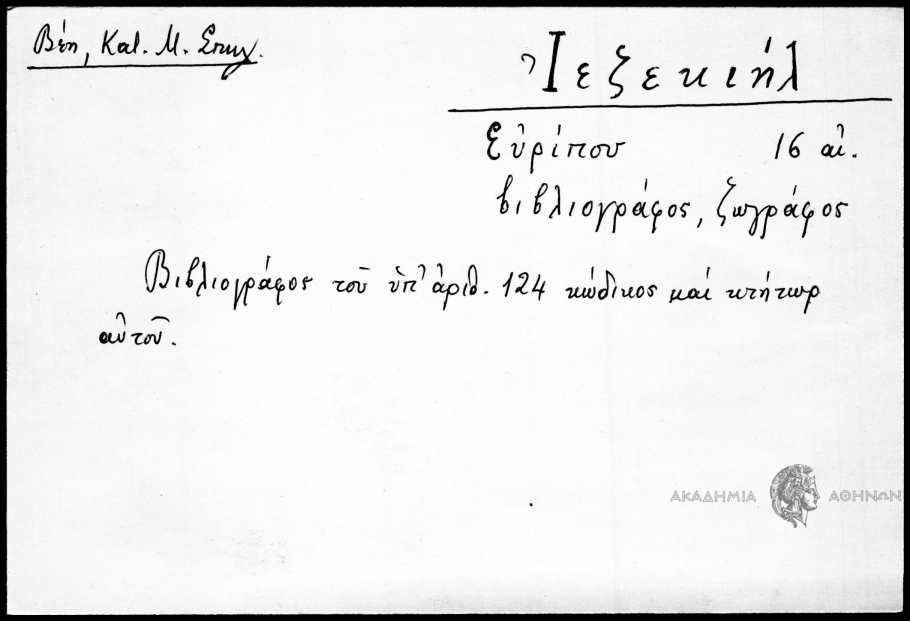 Βέη, Κατ. Μ. Σπηλ.
Ἰεζεκιήλ
Εὐρίπου 16 αἰ.
βιβλιογράφος, ζωγράφος
Βιβλιογράφος τοῦ ὑπ' ἀριθ. 124 κώδικος καί κτήτωρ
αὐτοῦ.
ΑΚΑΔΗΜΙΑ ΑΘΗΝΩΝ